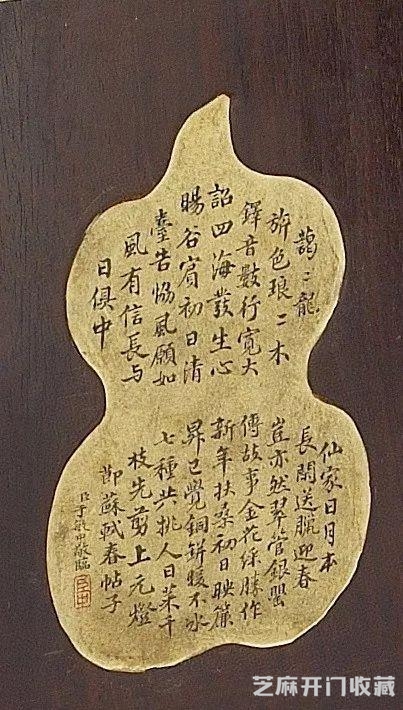 藹〻龍
旂色琅〻木
鐸音數行寬大
詔四海發生心
暘谷賓初日清
臺告協風願如
風有信長與
日俱中
仙家日月本
長閑送臘迎春
豈亦然翠管銀罌
傳故事金花綵勝作
新年扶桑初日映簾
昇已覺銅缾暖不冰
七種共挑人日菜千
枝先剪上元燈
節蘇軾春帖子
臣于敏中敬臨
芝麻开门收藏